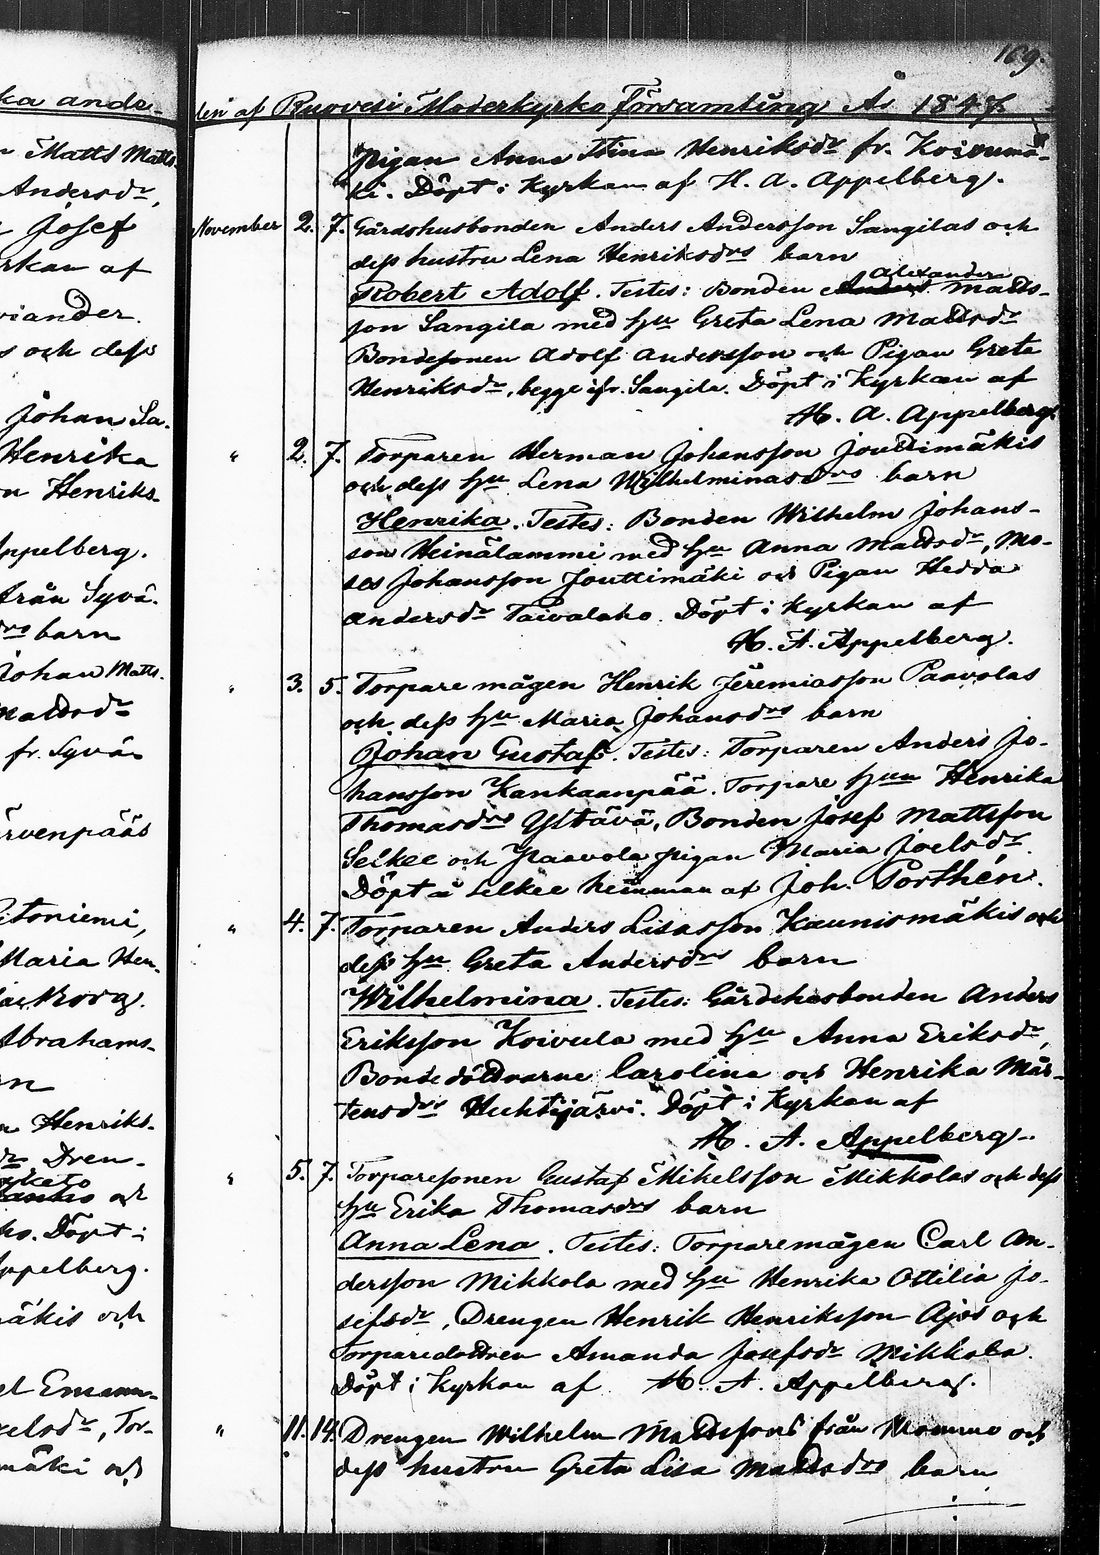 169.
ka ande-
den af Ruovesi Moderkyrko Församling År 1847.
n Matts Matts
Andersdr,
Josef
rkan af
viander.
s och dess
Johan Sa-
Henrika
n Henriks-
Appelberg.
från Syvä-
drs barn
Johan Matts-
Mattsdr
fr. Syvä-
ärvenpääs
Maria Hen-
Abrahams-
rn
n Henriks-
dr Dren-
ho. Döpt i
ppelberg.
mäkis och
el Emanu-
xelsdr, Tor-
mäki och
Pigan Anna Stina Henriksdr fr. Koivumä-
ki. Döpt i Kyrkan af H. A. Appelberg.
November 2. 7. Gårdshusbonden Anders Andersson Sangilas och
dess hustru Lena Henriksdrs barn
Robert Adolf. Testes: Bonden Anders Alexander Matts-
son Sangila med hu Greta Lena Mattsdr
Bondesonen Adolf Andersson och Pigan Greta
Henriksdr, begge ifr. Sangila. Döpt i Kyrkan af
H. A. Appelberg.
" 2. 7. Torparen Herman Johansson Jouttimäkis
och dess hu Lena Wilhelminasdrs barn
Henrika. Testes: Bonden Wilhelm Johans-
son Heinälammi med hu Anna Mattsdr, Mo-
ses Johansson Jouttimäki och Pigan Hedda
Andersdr Taivalaho. Döpt i Kyrkan af
H. A. Appelberg.
" 3. 5. Torpare mågen Henrik Jeremiasson Paavolas
och dess hu Maria Johansdrs barn
Johan Gustaf. Testes: Torparen Anders Jo-
hansson Kankaanpää. Torpare hun Henrika
Thomasdrs Ylitävä, Bonden Josef Mattsson
Selkee och Paavola pigan Maria Joelsdr.
Döpt å Selkee hemman af Joh. Porthén.
" 4. 7. Torparen Anders Lisasson Kaunismäkis och
dess hu Greta Andersdrs barn
Wilhelmina. Testes: Gårdshusbonden Anders
Eriksson Koivula med hu Anna Eriksdr,
Bondedöttrarne Carolina och Henrika Mår-
tensdrs Huhtijärvi. Döpt i Kyrkan af
H. A. Appelberg.
" 5. 7. Torparesonen Gustaf Mikelsson Mikkolas och dess
hu Erika Thomasdrs barn
Anna Lena. Testes: Torparemågen Carl An-
dersson Mikkola med hu Henrika Ottilia Jo-
sefsdr, Drengen Henrik Henriksson Ajos och
Torparedottren Amanda Josefsdr Mikkola.
Döpt i Kyrkan af H. A. Appelberg.
" 11. 14. Drengen Wilhelm Mattssons från Mommo och
dess hustru Greta Lisa Mattsdrs barn